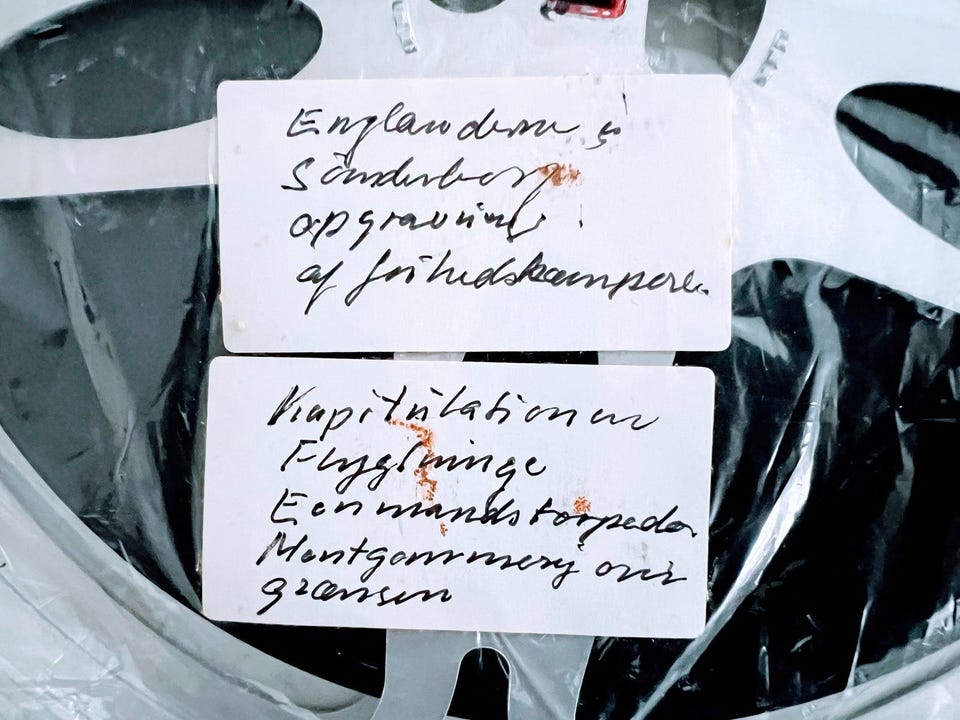 Englænderne i
Sönderborg
opgravning
af frihedskæmpere.
Kapitulationen
Flygtninge
Eenmandstorpedo
Montgommery over
grænsen